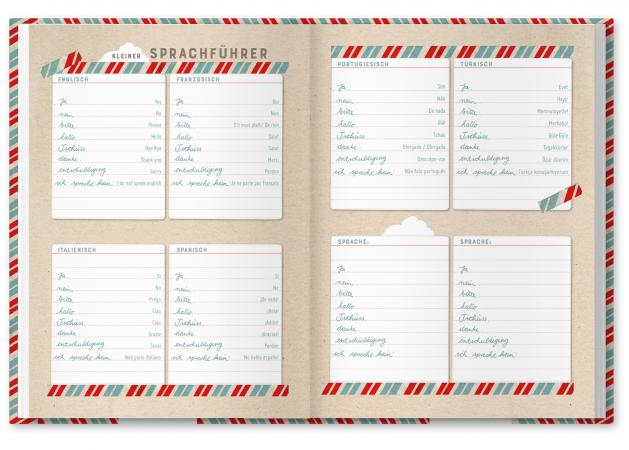 KLEINER SPRACHFÜHRER
ENGLISCH
ja Yes
nein No
bitte Please
hallo Hello
Tschüss Bye Bye
danke Thank you
entschuldigung Sorry
ich spreche kein I do not speak english
FRANZÖSISCH
ja Oui
nein Non
bitte S'il vous plaît/ De rien
hallo Salut
Tschüss Salut
danke Merci
entschuldigung Pardon
ich spreche kein Je ne parle pas français
ITALIENISCH
ja Si
nein No
bitte Prego
hallo Ciao
Tschüss Ciao
danke Grazie
entschuldigung Scusi
ich spreche kein Non parlo italiano
SPANISCH
ja Si
nein No
bitte ¡De nada!
hallo ¡Hola!
Tschüss ¡Adiós!
danke ¡Gracias!
entschuldigung Perdón
ich spreche kein No hablo español
PORTUGIESISCH
ja Sim
nein Não
bitte De nada
hallo Olá!
Tschüss Tchau
danke Obrigado / Obrigada
entschuldigung Desculpe-me
ich spreche kein Não falo português
TÜRKISCH
ja Evet
nein Hayır
bitte
hallo Merhaba!
Tschüss Güle Güle
danke Teşekkürler
entschuldigung Özür dilerim
ich spreche kein Türkçe konuşamıyorum
SPRACHE:
ja
nein
bitte
hallo
Tschüss
danke
entschuldigung
ich spreche kein
SPRACHE:
ja
nein
bitte
hallo
Tschüss
danke
entschuldigung
ich spreche kein